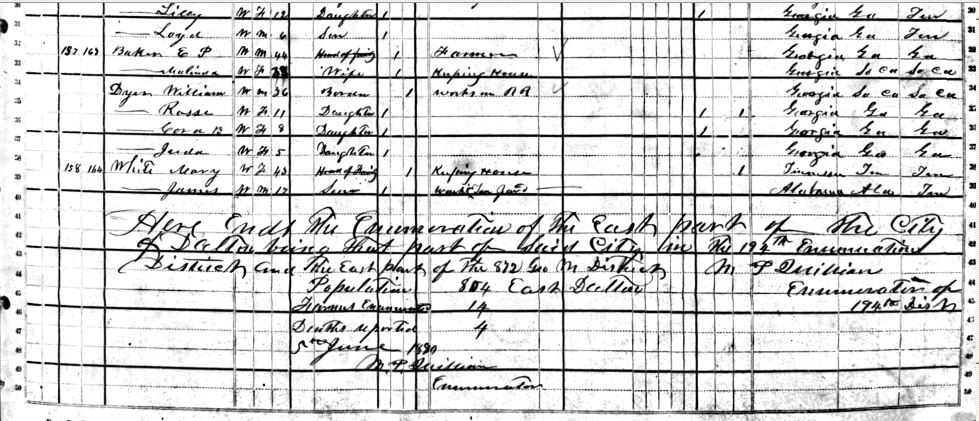 Daughter 1 1 Georgia Ga Ten
— Loyd W M 6 Son 1 Georgia Ga Ten
157 163 Baker E P W M 44 Head of family 1 Farmer Georgia Ga Ga
— Malinda W F Wife 1 Keeping House Georgia So Ca So Ca
Dyer William W M 36 1 works on RR Georgia So Ca So Ca
— Rosse W F 11 Daughter 1 1 1 Georgia Ga Ga
— Cora B W F 8 Daughter 1 1 Georgia Ga Ga
— Juda W F 5 Daughter 1 Georgia Ga Ga
158 164 White Mary W F 43 Head of family 1 Keeping House 1 Ten Ten
— James W M 17 Son 1 Alabama Ala Ten
Here Ends The Enumeration of The East part of The City
of Dalton being that part of said City in The 194th Enumeration
District and The East part of The 872 Geo M District M P Quillian
Population 804 East Dalton Enumerator of
Farms Enumerated 14 194th Dist
Deaths reported 4
5th June 1880
M. P. Quillian
Enumerator